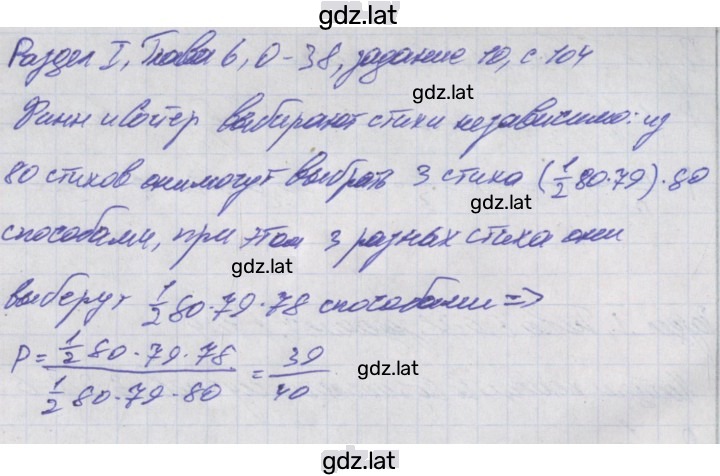 gdz.lat
Раздел I, Глава 6, О-38, задание 10, с. 104
gdz.lat
Финн и Сойер выбирают стихи независимо: из
80 стихов они могут выбрать 3 стиха (1/2 80·79)·80
gdz.lat
способами, при этом 3 разных стиха они
gdz.lat
выберут 1/2 80·79·78 способами =>
P = (1/2 80·79·78)/(1/2 80·79·80) = 39/40
gdz.lat
gdz.lat